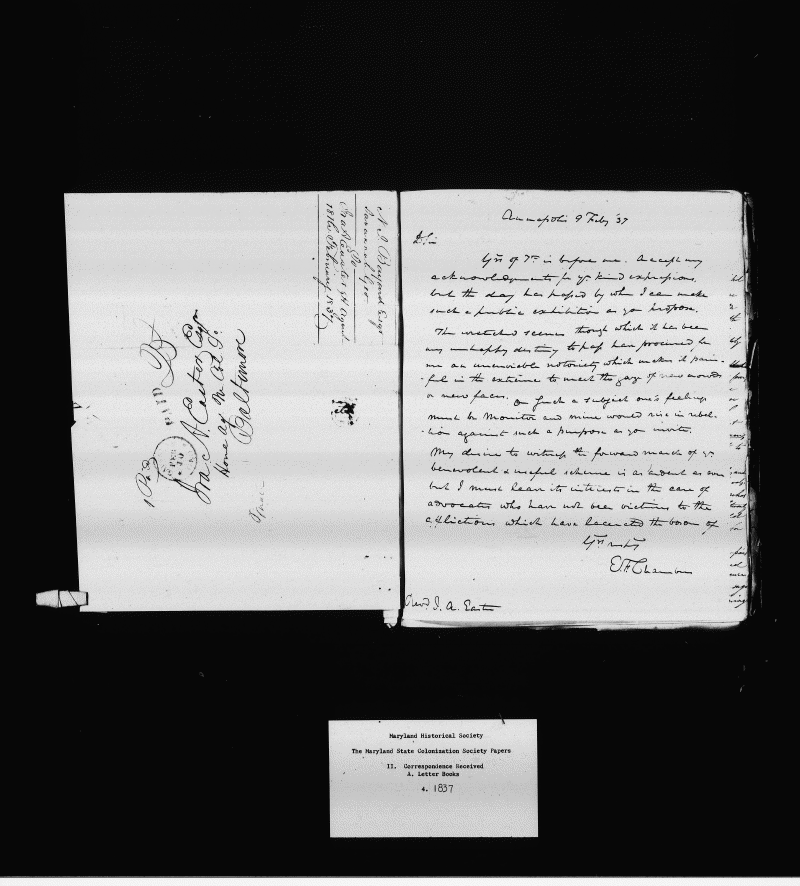 N. J. Bayard Esqr
Savannah Geo
To
Ira A Easter Esq Agent
18th February 1837
PAID
1 Paid
Ira A Easter Esqr
Home Agt M. Col. S.
Baltimore
Annapolis 9 Feby '37
D Sir
Yrs of 7th is before me. Accept my
acknowledgments for yr kind expressions,
but the day has passed by when I can make
such a public exhibition as you propose.
The wretched scenes through which it has been
my unhappy destiny to pass have procured for
me an unenviable notoriety which makes it pain-
-ful in the extreme to meet the gaze of new crowds
or new faces. On such a subject one's feelings
must be Monitor and mine would rise in rebel-
-lion against such a purpose as you invite.
My desire to witness the forward march of yr
benevolent & useful scheme is as ardent as ever
but I must leave its interests in the care of
advocates who have not been victims to the
afflictions which have lacerated the bosom of
Yrs
E F Chambers
Revd I. A. Easter
Maryland Historical Society
The Maryland State Colonization Society Papers
II. Correspondence Received
A. Letter Books
4. 1837